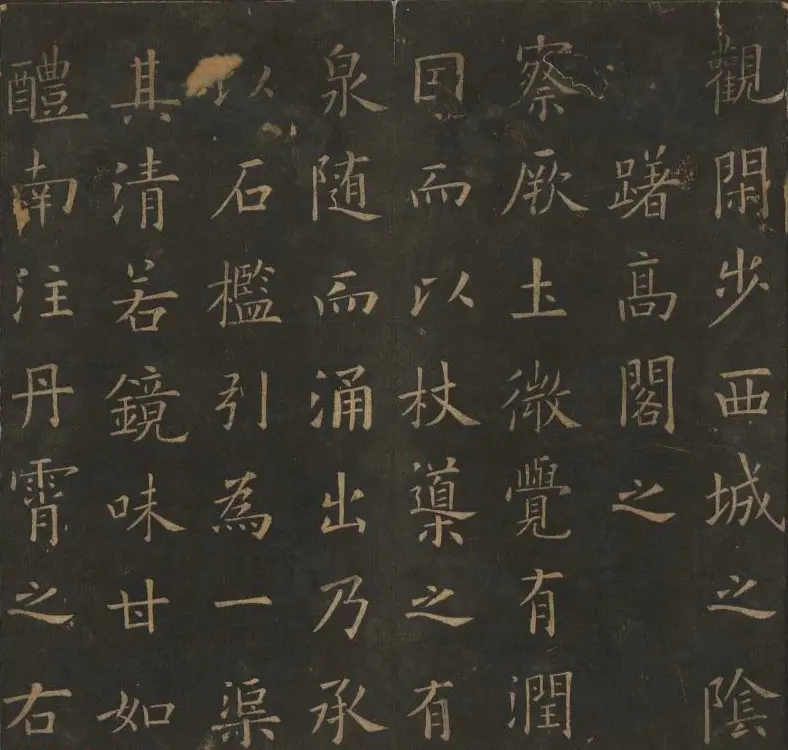 觀閑步西城之陰
躇髙閣之
察厥土微覺有潤
因而以杖導之有
泉随而涌出乃承
以石檻引為一渠
其清若鏡味甘如
醴南注丹霄之右